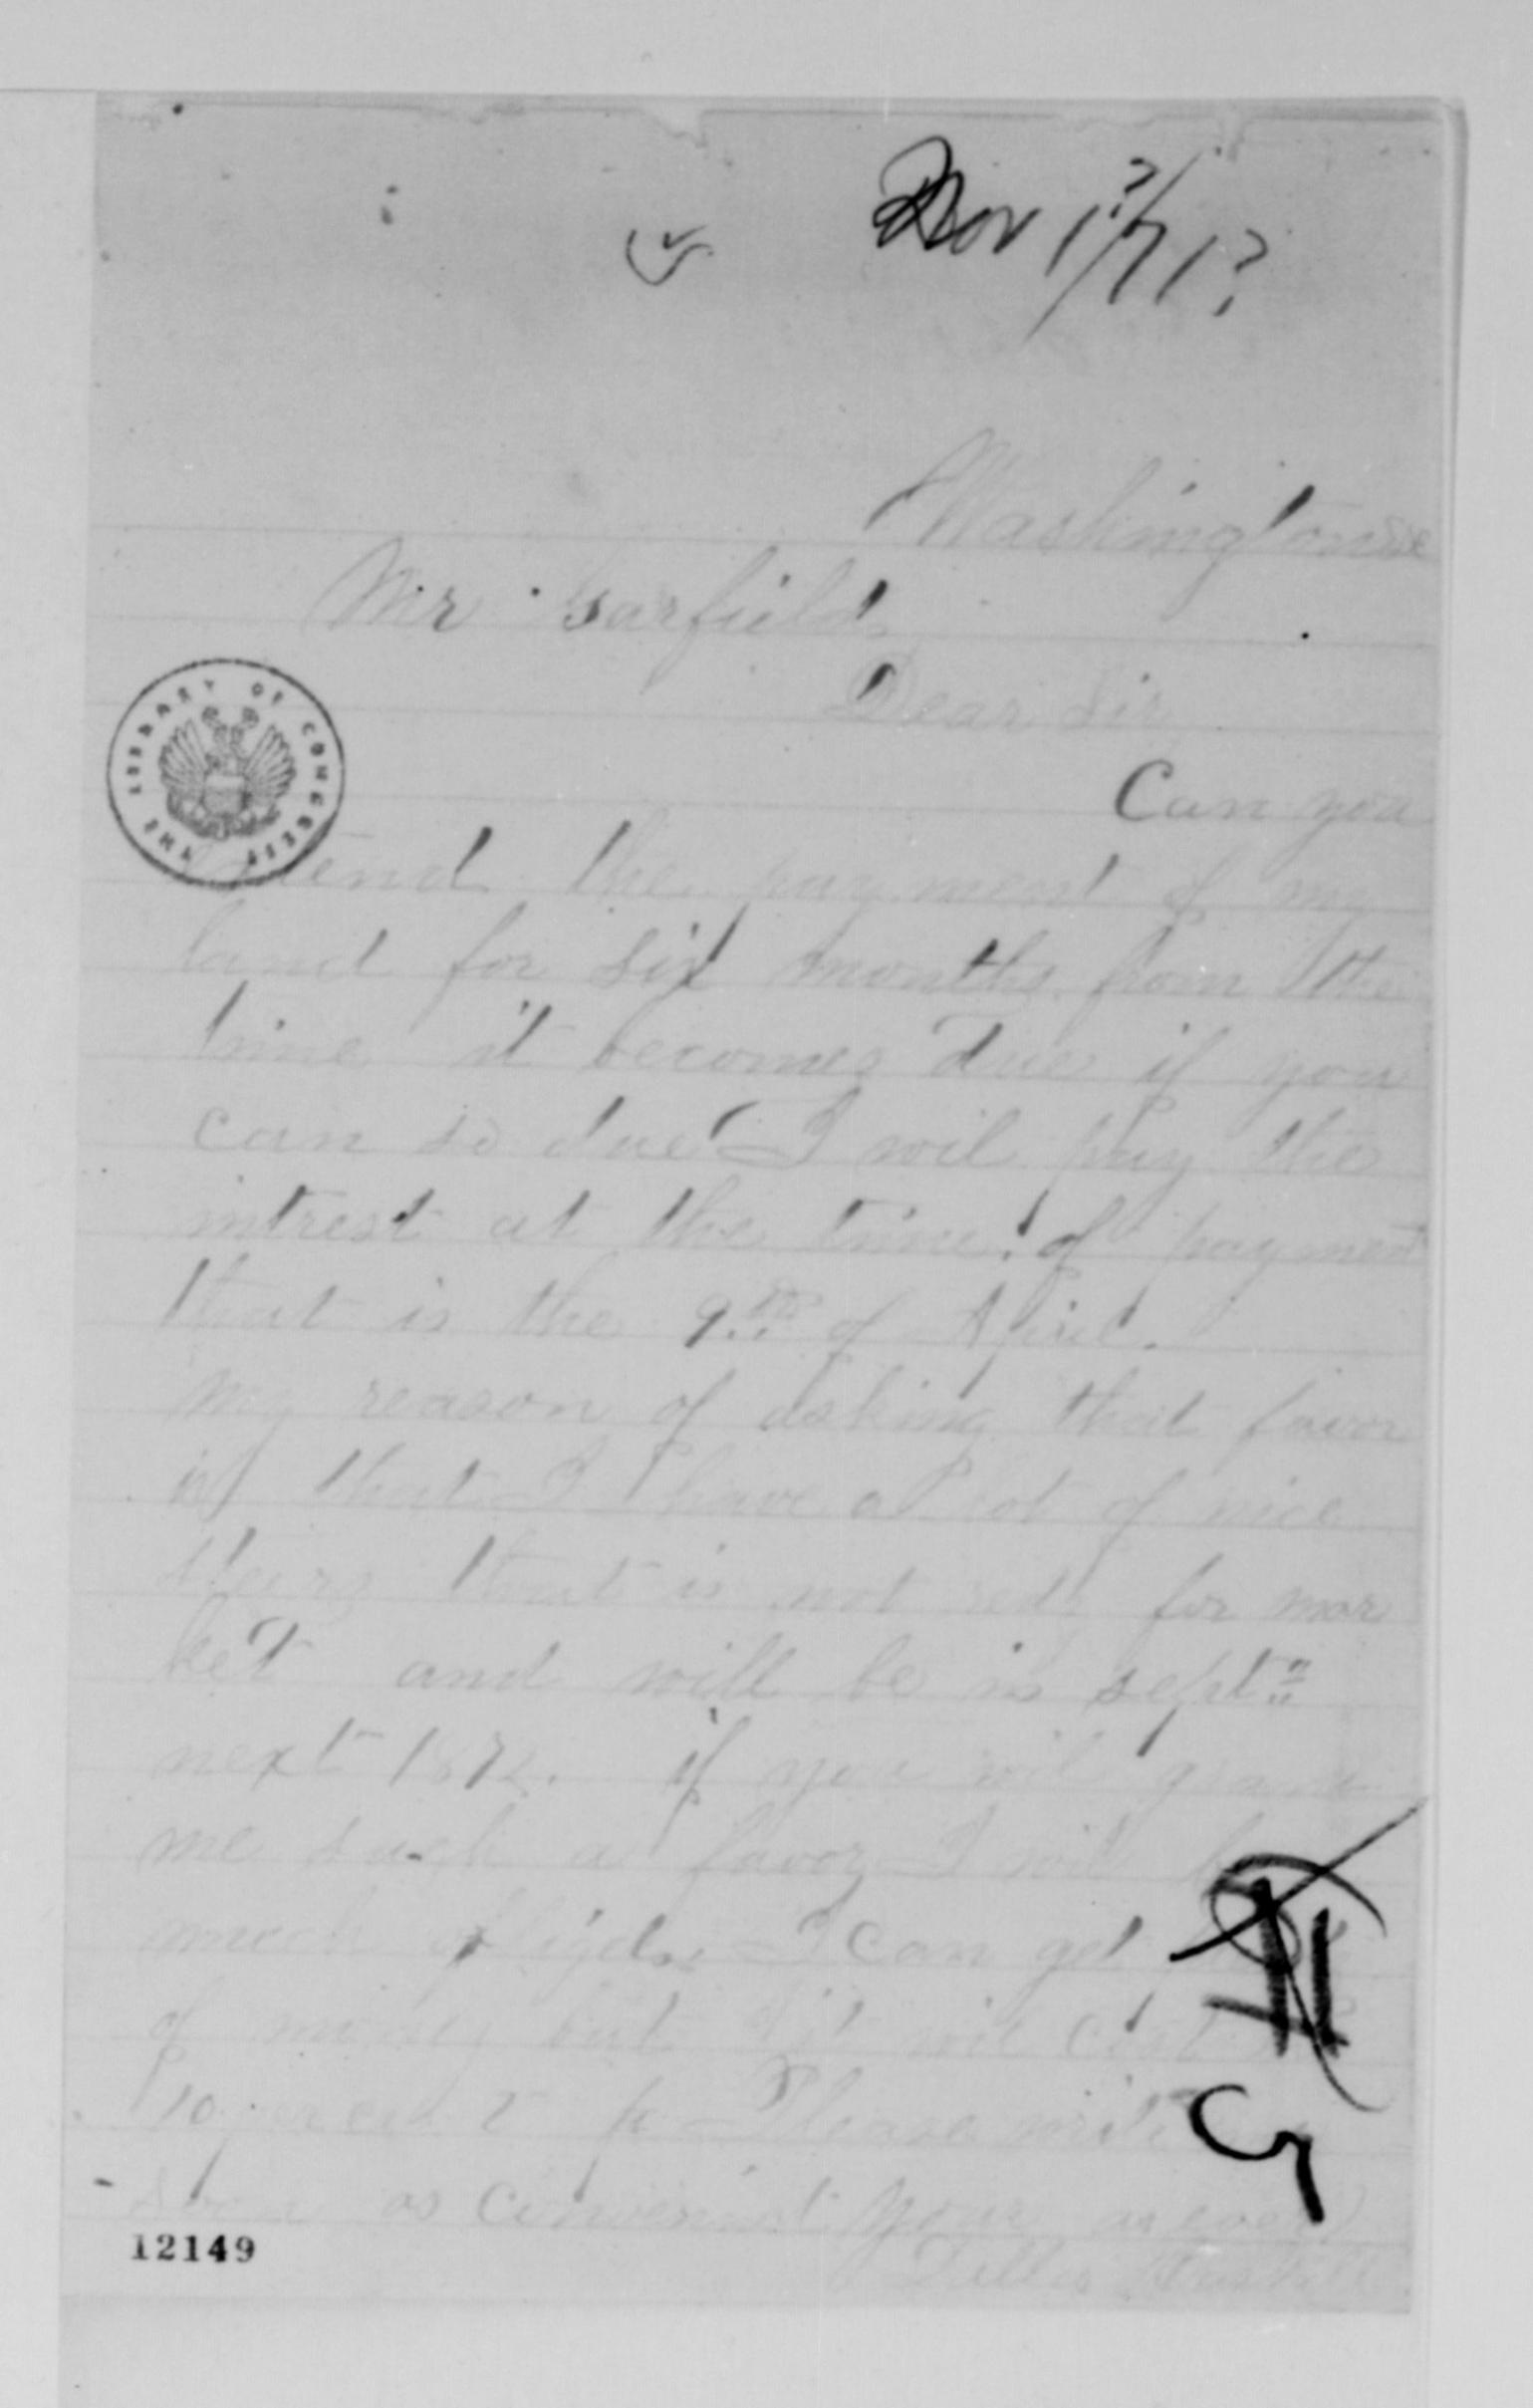 Nov 1?/71?
Washington
Mr Garfield
Dear Sir
Can you
THE LIBRARY OF CONGRESS
extend the payment of my
land for six months from the
time it becomes due if you
can so due I wil pay the
intrest at the time of payment
that is the 9th of April.
My reason of asking that favor
is that I have a lot of nice
steers that is not redy for mar
ket and will be in sept
next 1872. if you wil grant
me such a favor I will
much I can get
of money but it wil cost
10 per cent Please write
soon as convenient Yours as ever
12149